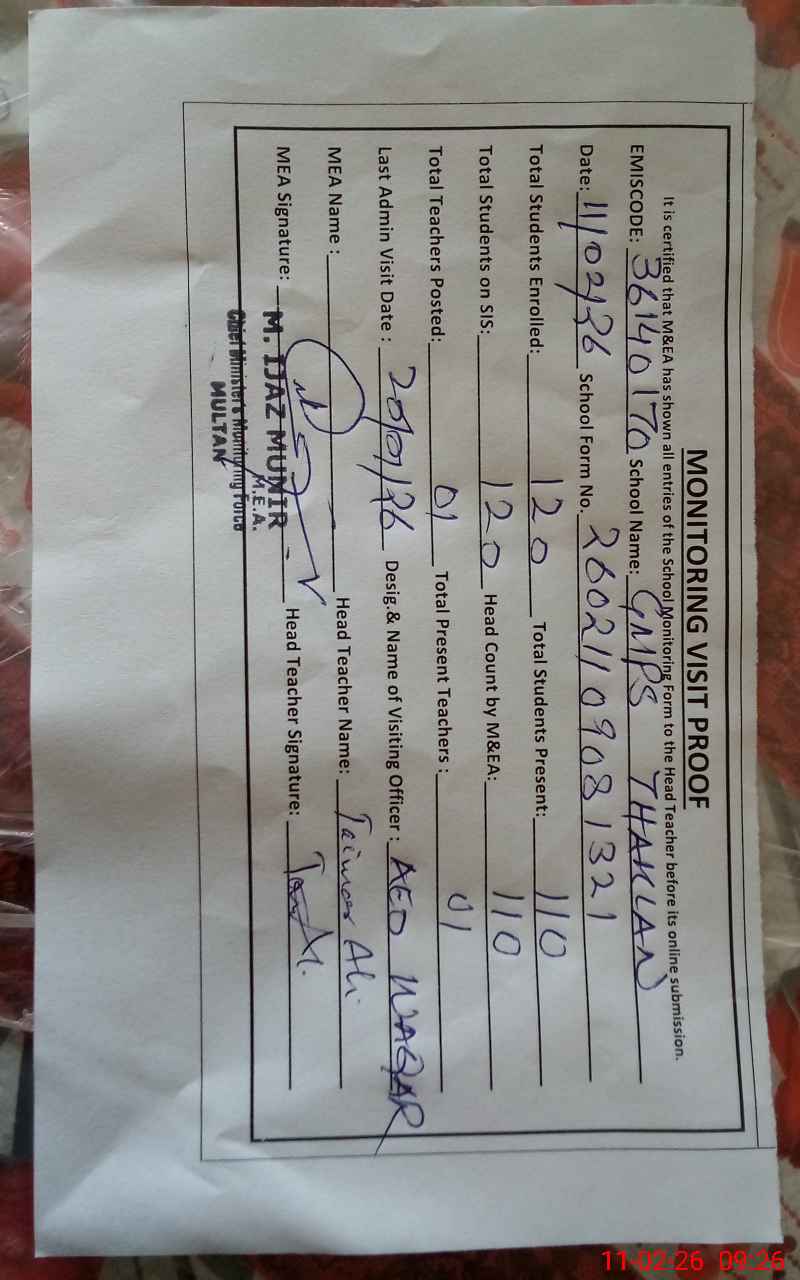 MONITORING VISIT PROOF
It is certified that M&EA has shown all entries of the School Monitoring Form to the Head Teacher before its online submission.
EMISCODE: 36140170 School Name: GMPS THAKLAN
Date: 11/02/26 School Form No. 260211090813 21
Total Students Enrolled: 120 Total Students Present: 110
Total Students on SIS: 120 Head Count by M&EA: 110
Total Teachers Posted: 01 Total Present Teachers : 01
Last Admin Visit Date : 20/01/26 Desig.& Name of Visiting Officer : AEO WAQAR
MEA Name : Head Teacher Name: Taimoor Ali
MEA Signature: Head Teacher Signature:
M. IJAZ MUNIR
M.E.A.
Chief Minister's Monitoring Force
MULTAN
11-02-26 09:26